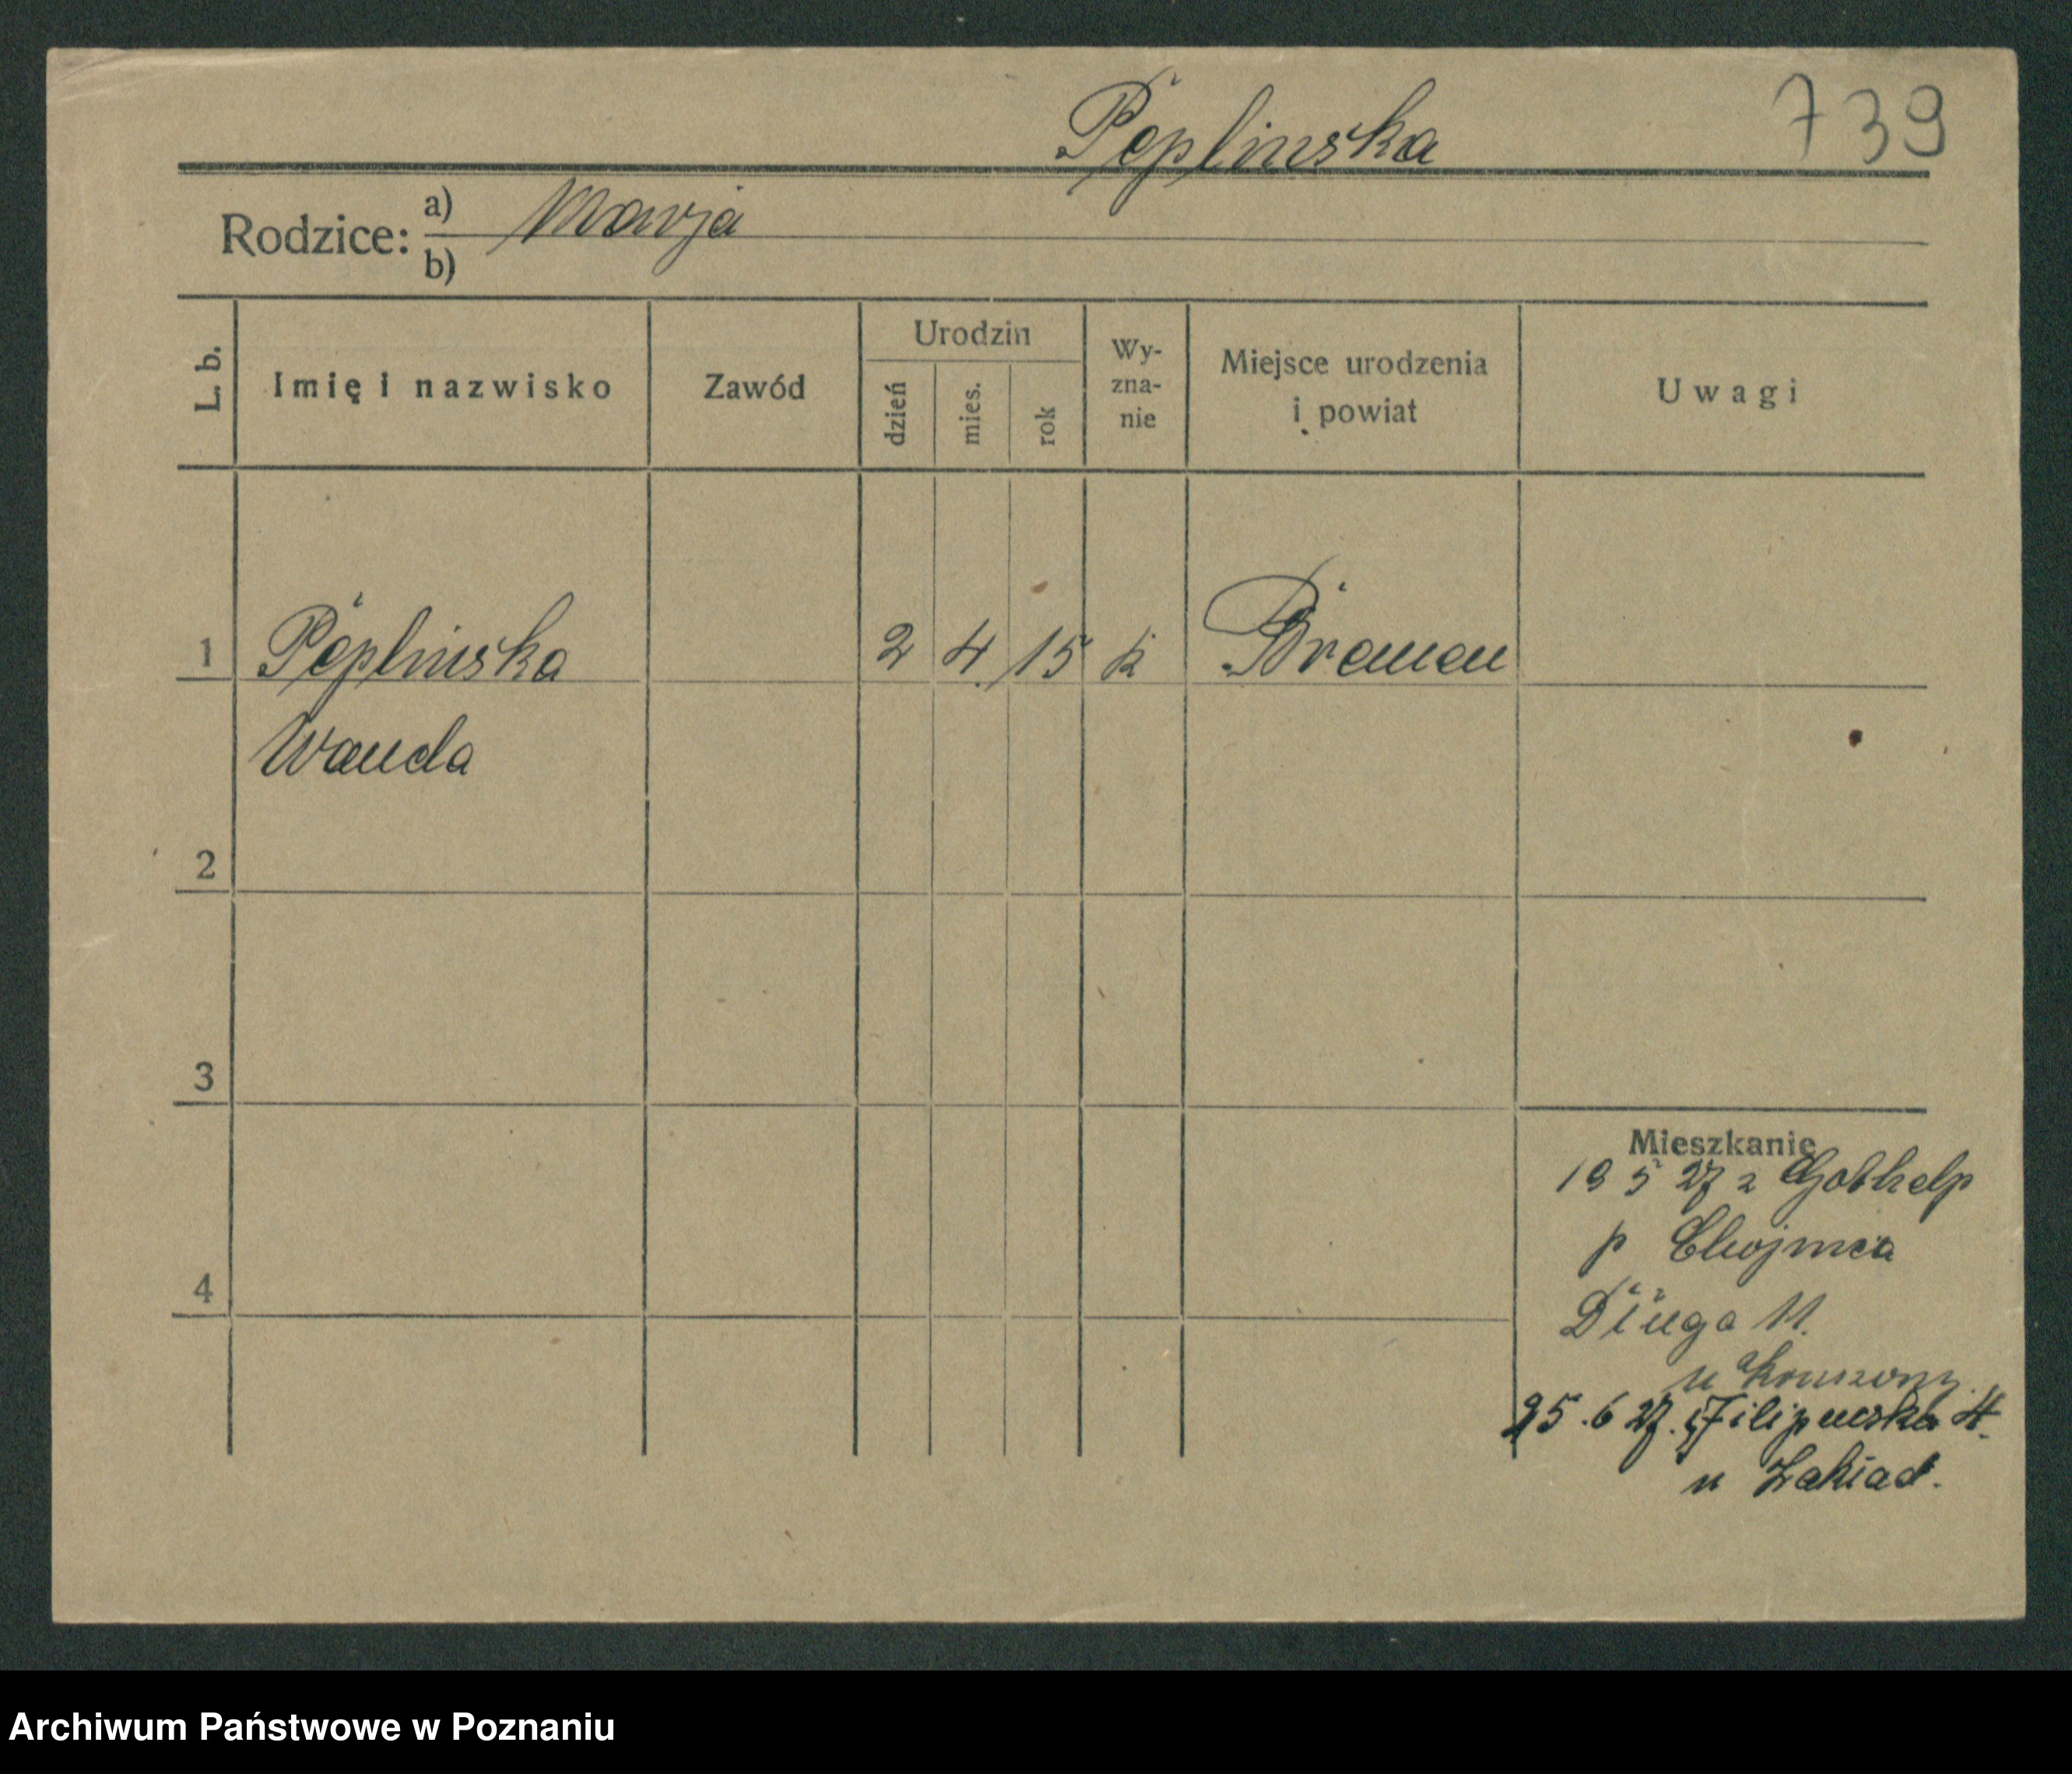 Peplinska 739
Rodzice: a) Marja
b)
L. b. Imię i nazwisko Zawód Urodzin dzień mies. rok Wy-zna-nie Miejsce urodzenia i powiat Uwagi
1 Peplinska 2 4. 15 k Bremen
Wanda
2
3
4
Mieszkanie
19 5 27 z Gothelp
p Chojnica
Długa 11.
u
25. 6 27. Filipinska 4.
u Zakład.
Archiwum Państwowe w Poznaniu